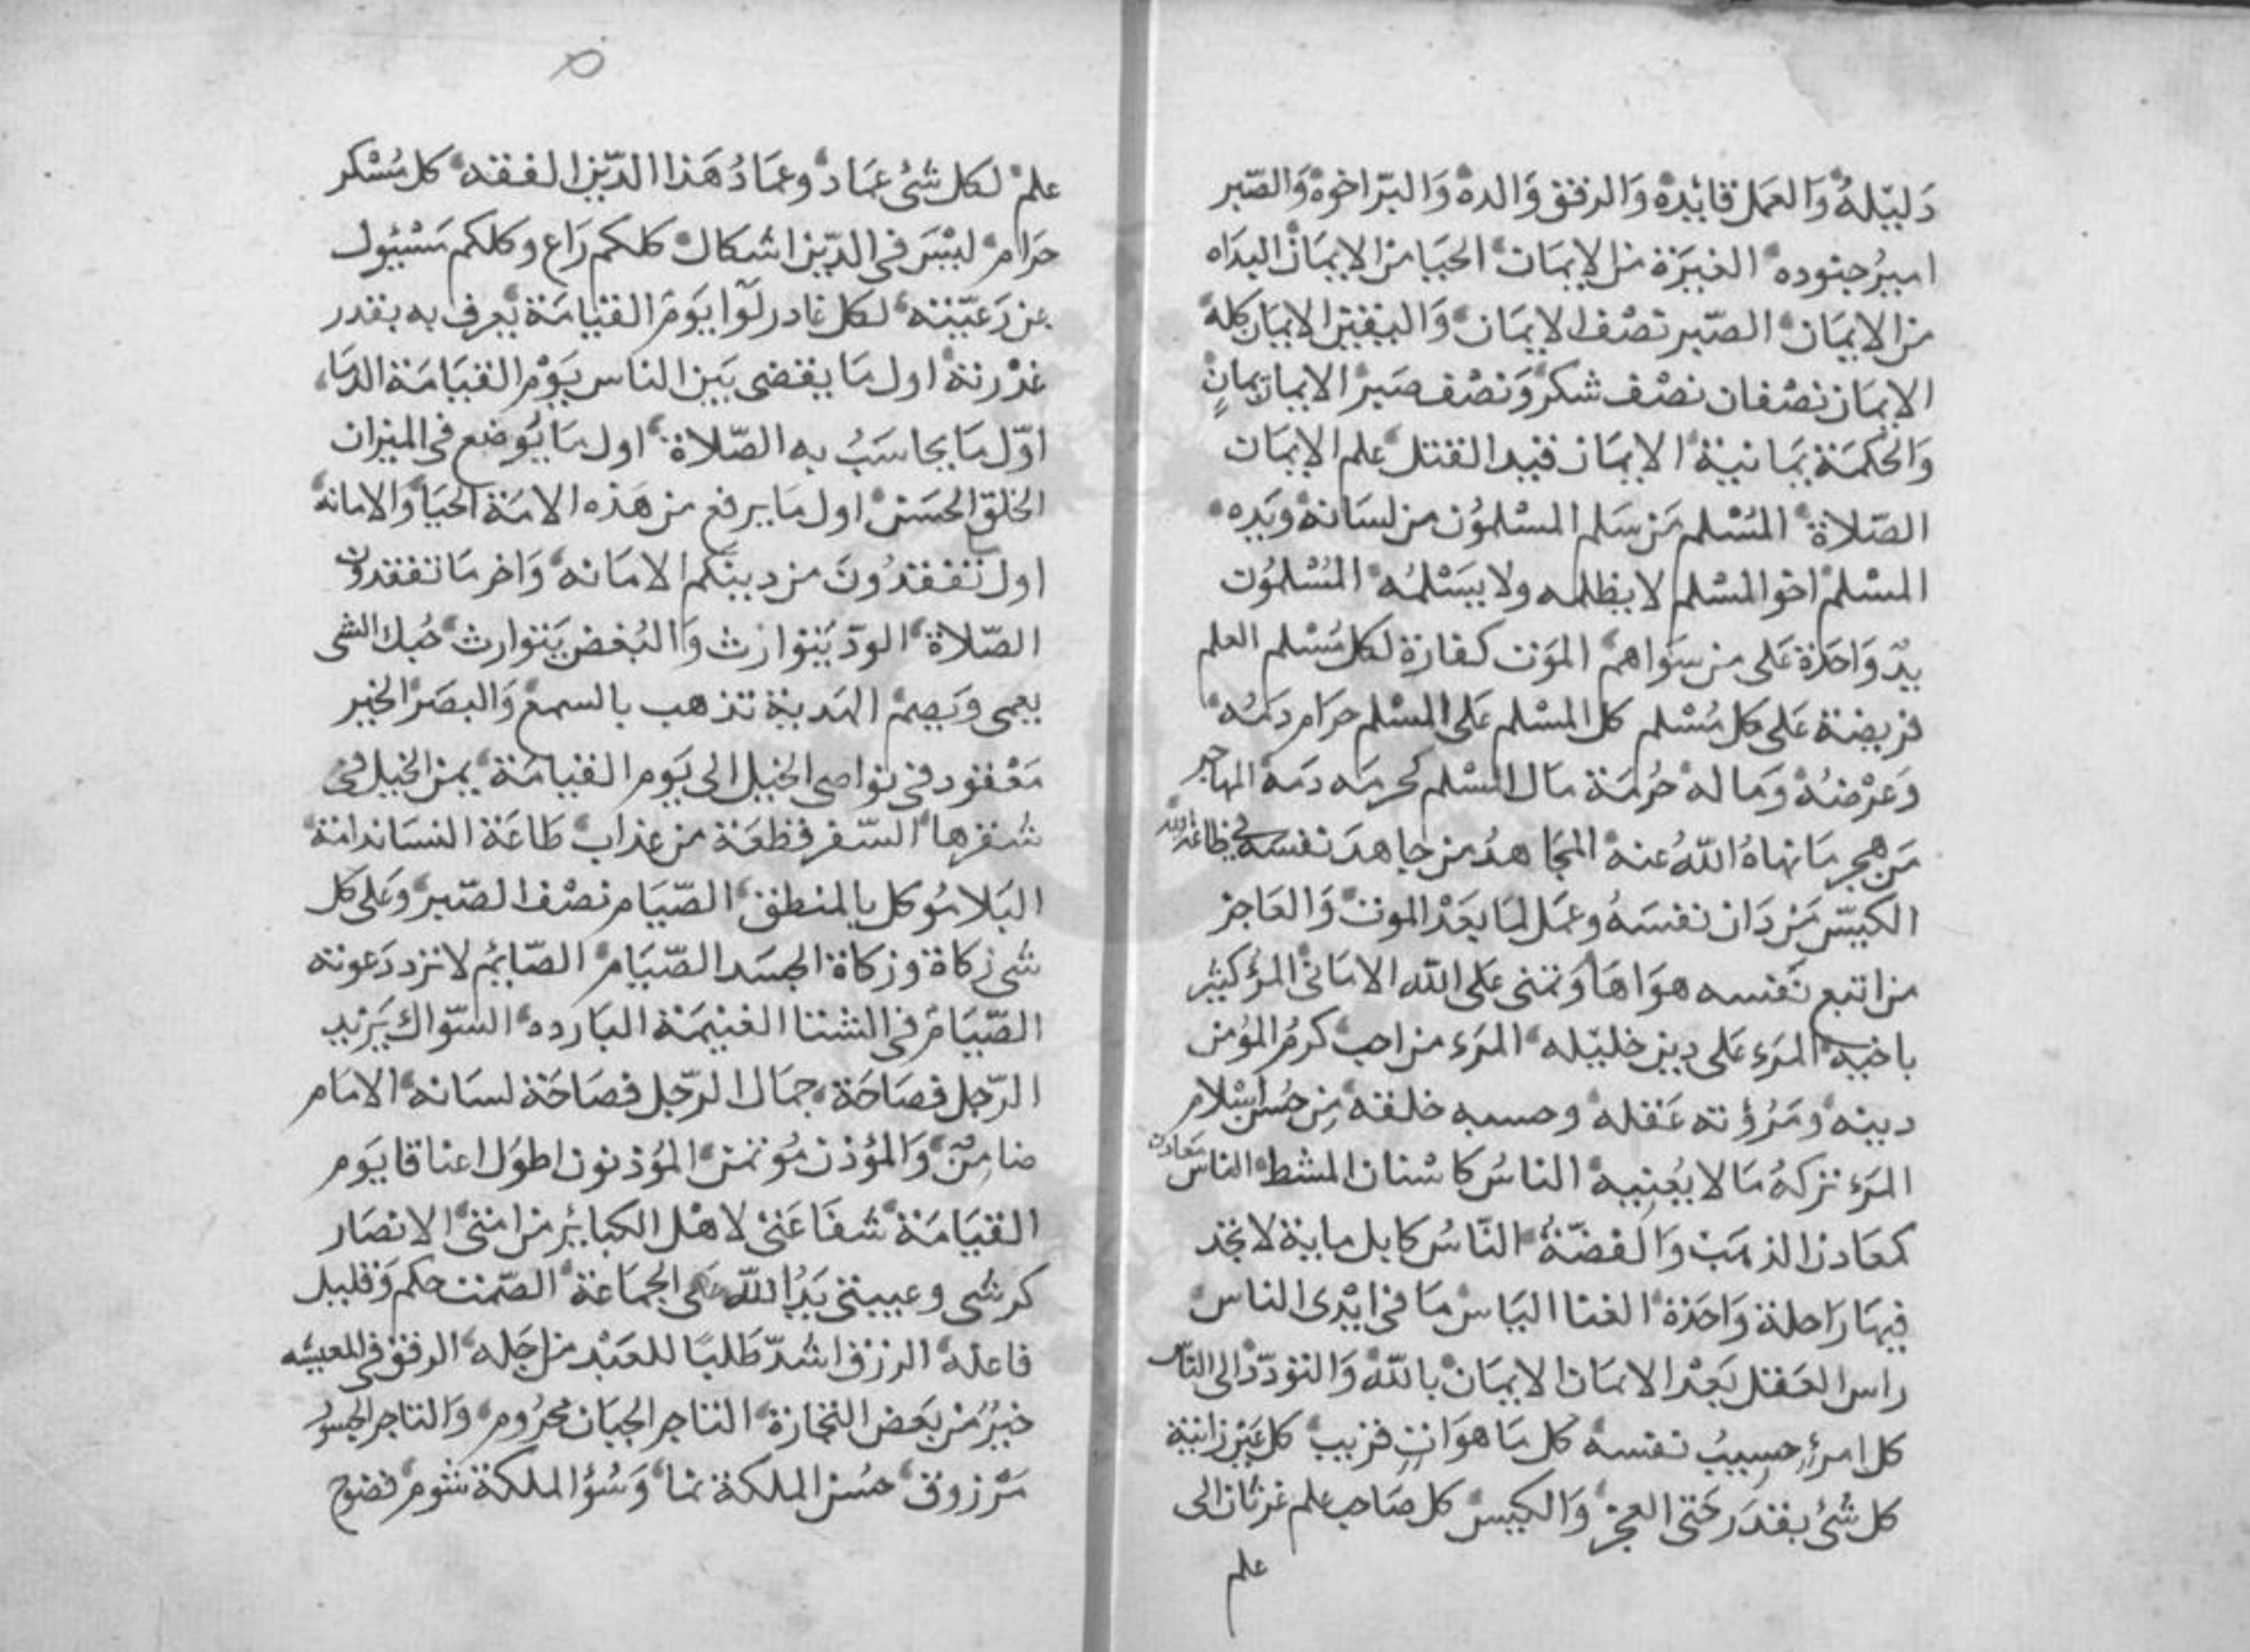 دَليْلهُ وَالعَمَل قائِدهُ وَالرفق وَالدهُ وَالبرّ اخوهُ وَالصّبر
اميرُ جنوده الغيرَة من الإيمَان الحيَا من الإيمَان البدَاه
من الايمَان الصّبر نصْف الايمَان وَاليقين الايمَان كله
الايمَان نصْفان نصْف شكر وَنصْف صَبر الايمان يمانٍ
وَالحكمَة يمَانية الايمَان قيد الفتك علم الايمَان
الصّلاة المسْلم مَن سَلم المسْلمُون من لسَانه وَيَده
المسْلم اخو المسْلم لا يظلمه ولا يسَْلمُه المسْلمُون
يدٌ وَاحدَة عَلى من سوَاهم الموَت كفارَة لكل مُسْلم العلم
فريضة عَلى كل مُسْلم كل المسْلم عَلى المسْلم حرَام دَمُه
وَعرْضهُ وَمَاله حُرْمَة مَال المسْلم كحرمَه دَمَه المهاجر
مَن هجر مَا نهاهُ اللهُ عنه المجَاهدُ من جاهدَ نفسَه في طاعة الله
الكيسّ مَن دَان نفسَهُ وعمَل لمَا بعَدْ الموت وَالعَاجز
من اتبع نَفسه هوَاهَا وَتمنى عَلى الله الامَانى المرؤ كثير
باخيه المرَء عَلى دين خليْله المرَء من احب كرمُ المؤمن
دينه وَمَرُؤته عَقله وحسبه خلقه مِن حُسن اسْلام
المرَء تركهُ مَا لا يعُنِيه الناسُ كاسْنان المشط الناس معَادن
كمعَادن الذهَب وَالفضّة النّاسُ كابل ماية لا تجد
فيهَا رَاحلة وَاحدَة الغنا اليَاس مَا في ايْدى الناس
راس العَقل بَعْد الامَان الايمَان بالله وَالتودّد الى الناس
كل امرءٍ حسِيبُ نفسه كل مَا هوَ اتٍ قريب كل عَين زانية
كل شَئ بقدَر حَتى العجز وَالكيس كل صَاحب علم غرثان الى
علم
علم لكل شئ عمَاد وعمَادُ هَذا الدّين الفقه كل مُسْكر
حرَام ليْسَ في الدّين اشكال كلكم رَاع وكلكم مَسْئول
عن رَعيّته لكل غادر لوَا يوَم القيامَة يعرف به بقدر
غدْرته اول مَا يقضى بَين الناس يَوْم القيامَة الدّمَا
اوّل مَا يحاسَبُ به الصّلاة اول مَا يُوضع في الميزان
الخلق الحسَن اول مَا يرفع من هَذه الامَة الحيَا وَالامانه
اول مَا تفقدُونَ من دينكم الامَانه وَاخر مَا تفقدون
الصّلاة الودّ يَتوارث وَالبُغض يَتوارث حُبك الشى
يعمى وَيَصم الهَدية تذهب بالسمع وَالبصَر الخير
مَعْقود في نواصى الخيل الى يوَم القيامَة يمن الخيل في
شقرها السّفر قطعَة من عذاب طَاعَة النسَا ندامَة
البَلا مُوكل بالمنطق الصّيَام نصْف الصّبر وَعَلى كل
شى زكاة وزكاة الجسَد الصّيَام الصّايم لا ترد دَعوته
الصّيَام في الشتا الغنيمَة البَارده السّواك يَزيد
الرّجل فصَاحَة جمَال الرّجل فصَاحَة لسَانه الامَام
ضامِنٌ وَالمؤذن مُؤتمن المؤذنون اطوَل اعناقا يوَم
القيَامَة شفَاعَتى لاهْل الكبائر من امتى الانصَار
كرشى وعيبتى يَدُ الله عَلى الجمَاعة الصّمت حكم وَقليل
فاعله الرزق اشدّ طَلبًا للعَبْد من اجَله الرفق في المعيشه
خيرٌ من بعَض التجَارَة التاجر الجبَان محرُوم وَالتاجر الجسُور
مَرْزوق حسُن الملكة نمَا وَسُوُ الملكة شوم فضوح